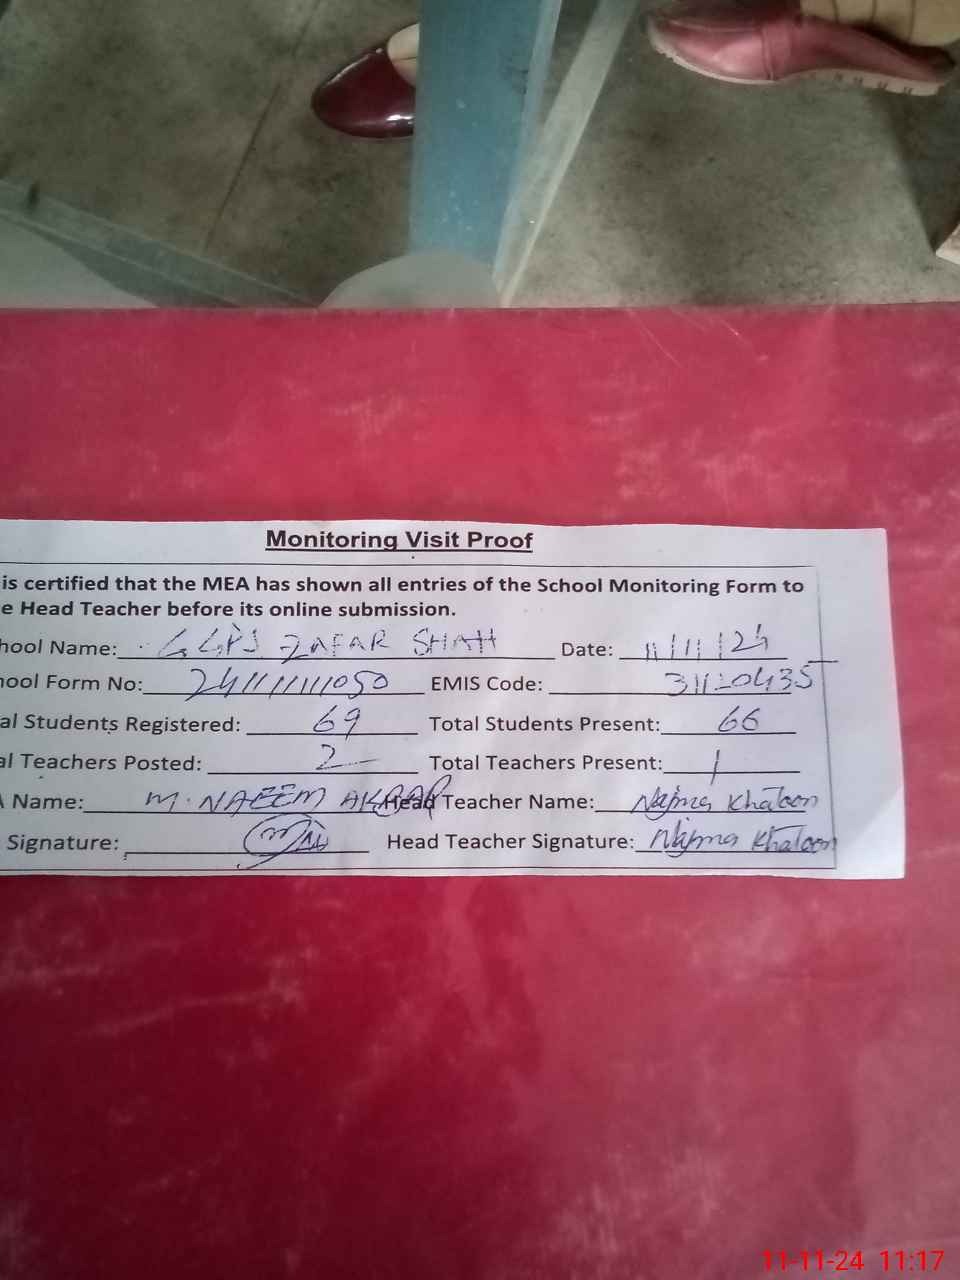 Monitoring Visit Proof
is certified that the MEA has shown all entries of the School Monitoring Form to
e Head Teacher before its online submission.
hool Name: GGPS ZAFAR SHAH Date: 11/11/24
hool Form No: 24111111050 EMIS Code: 31120435
al Students Registered: 69 Total Students Present: 66
al Teachers Posted: 2 Total Teachers Present: 1
A Name: M. NAEEM AKBAR Head Teacher Name: Najma Khatoon
Signature: Head Teacher Signature: Najma Khatoon
11-11-24 11:17